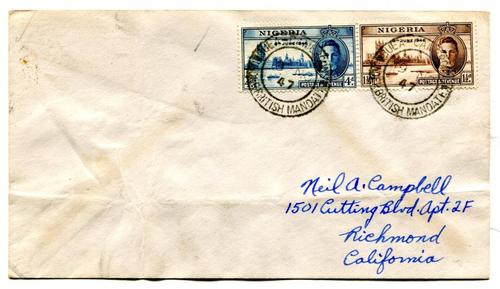 NIGERIA
8TH JUNE 1946
POSTAGE & REVENUE
4D
NIGERIA
8TH JUNE 1946
POSTAGE & REVENUE
1½D
47
BRITISH MANDATE
47
BRITISH MANDATE
Neil A. Campbell
1501 Cutting Blvd. Apt. 2F
Richmond
California